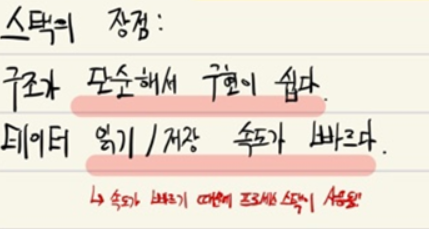 스택의 장점:
구조가 단순해서 구현이 쉽다.
데이터 읽기/저장 속도가 빠르다.
↳ 속도가 빠르기 때문에 프로세스 스택이 사용됨